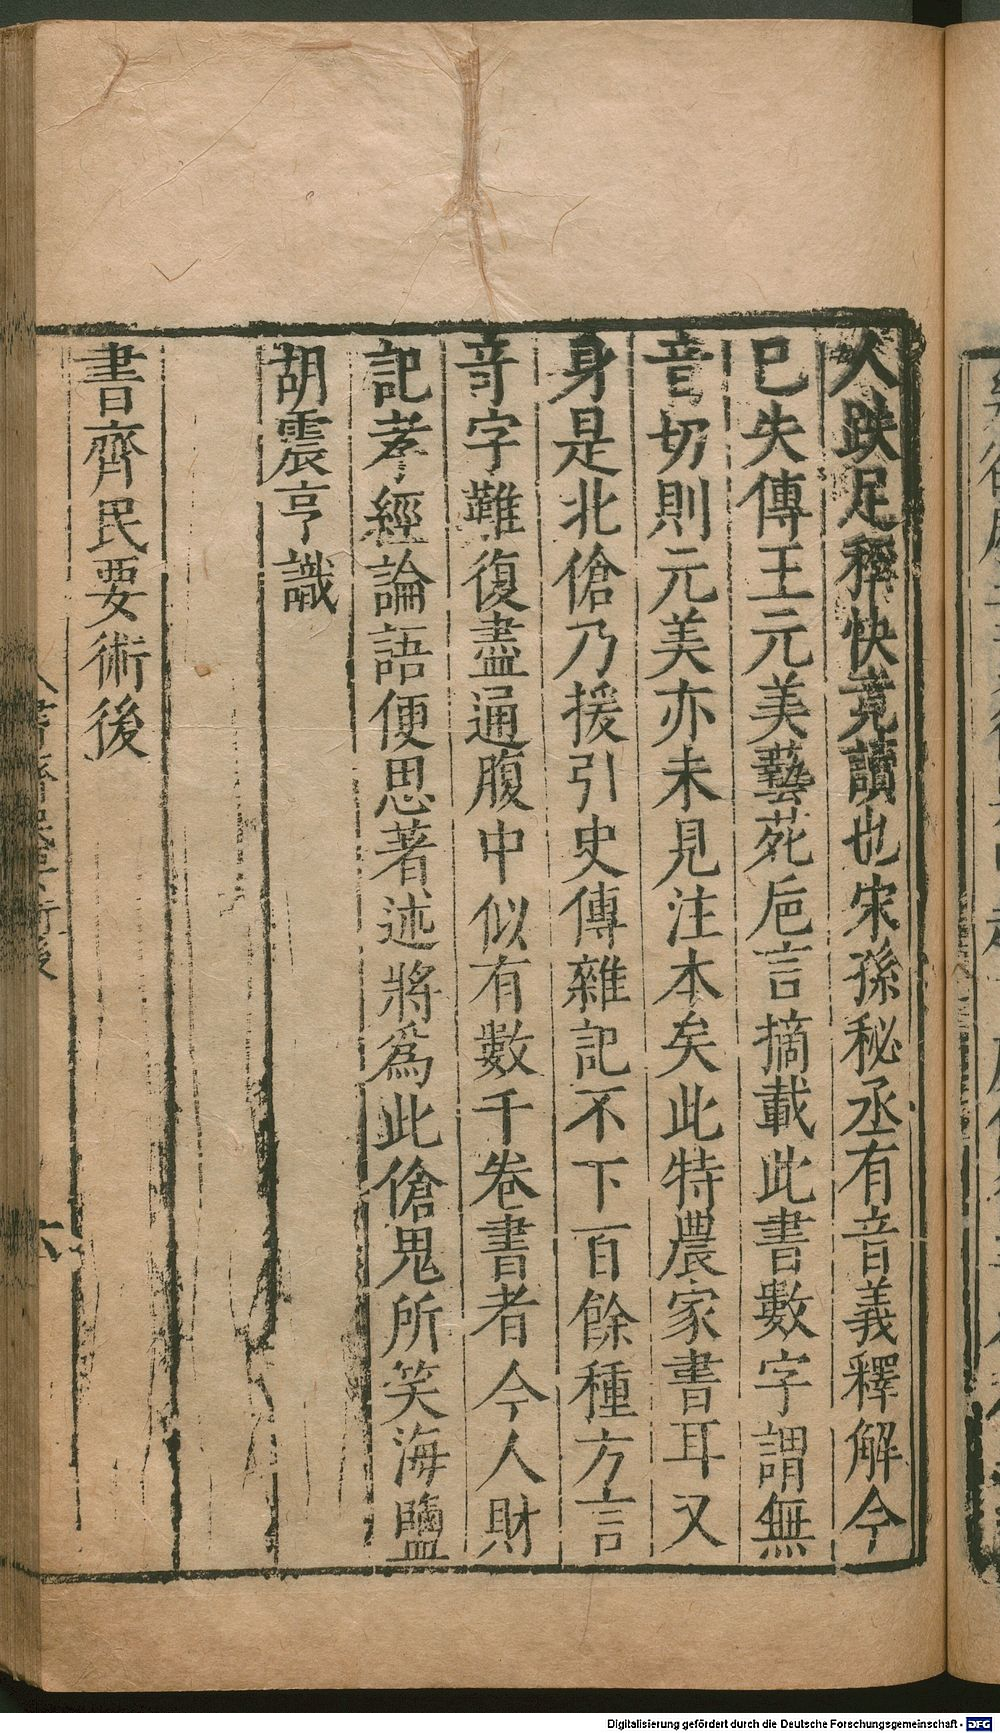 人跌足稱快竟讀也宋孫秘丞有音義釋解今
已失傳王元美藝苑巵言摘載此書數字謂無
音切則元美亦未見注本矣此特農家書耳又
身是北傖乃援引史傳雜記不下百餘種方言
竒字難復盡通腹中似有數千卷書者今人財
記孝經論語便思著述將爲此傖鬼所笑海鹽
胡震亨識
書齊民要術後
Digitalisierung gefördert durch die Deutsche Forschungsgemeinschaft - DFG